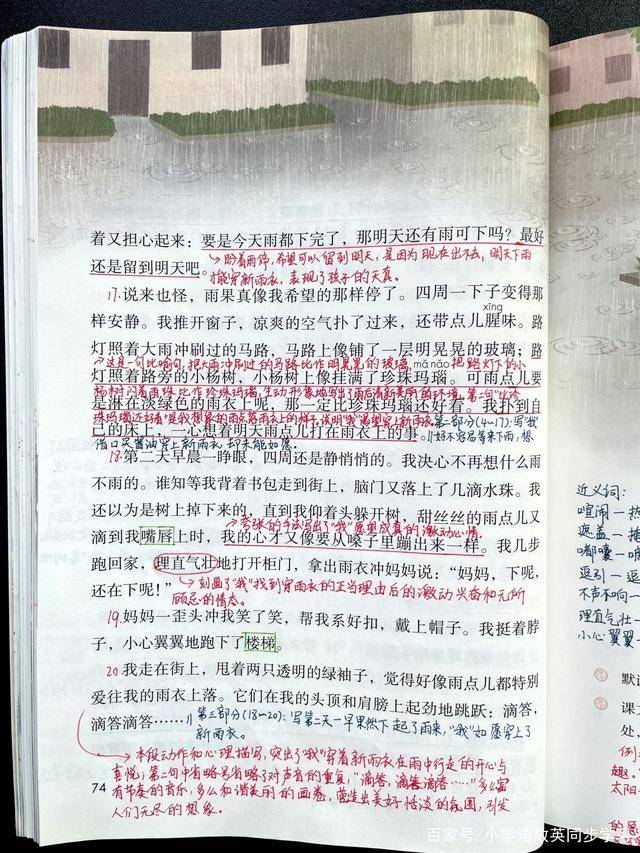 着又担心起来：要是今天雨都下完了，那明天还有雨可下吗？最好
还是留到明天吧。
盼着雨停，希望可以留到明天，是因为现在出不去，明天下雨
才能穿新雨衣，表现了孩子的天真。
17.说来也怪，雨果真像我希望的那样停了。四周一下子变得那
xīng
样安静。我推开窗子，凉爽的空气扑了过来，还带点儿腥味。路
灯照着大雨冲刷过的马路，马路上像铺了一层明晃晃的玻璃；路
这是一句比喻句，把大雨冲刷过的马路比作明晃晃的玻璃，把路灯下的小
mǎ nǎo
灯照着路旁的小杨树，小杨树上像挂满了珍珠玛瑙。可雨点儿要
杨树闪着雨珠比作珍珠玛瑙，生动形象地写出了雨后清新美丽的环境。
是淋在淡绿色的雨衣上呢，那一定比珍珠玛瑙还好看。我扑到自
己的床上，一心想着明天雨点儿打在雨衣上的事
第二部分(4—17)：写"我"
好不容易等来下雨，想
借口买酱油穿上新雨衣，却未能如愿。
18.第二天早晨一睁眼，四周还是静悄悄的。我决心不再想什么雨
不雨的。谁知等我背着书包走到街上，脑门又落上了几滴水珠。我
还以为是树上掉下来的，直到我仰着头躲开树，甜丝丝的雨点儿又
夸张的手法写出了"我"愿望成真的激动心情。
滴到我嘴唇上时，我的心才又像要从嗓子里蹦出来一样。我几步
跑回家，理直气壮地打开柜门，拿出雨衣冲妈妈说："妈妈，下呢，
还在下呢！"
刻画了"我"找到穿雨衣的正当理由后的激动兴奋和无所
顾忌的情态。
19.妈妈一歪头冲我笑了笑，帮我系好扣，戴上帽子。我挺着脖
子，小心翼翼地跑下了楼梯。
20.我走在街上，甩着两只透明的绿袖子，觉得好像雨点儿都特别
爱往我的雨衣上落。它们在我的头顶和肩膀上起劲地跳跃：滴答，
滴答滴答……
第三部分(18—20)：写第二天一早果然下起了雨来，"我"如愿穿上了
新雨衣。
本段动作和心理描写，突出了"我"穿着新雨衣在雨中行走的开心与
喜悦；第二句中省略号省略了对声音的重复，"滴答，滴答滴答……"多么富
有节奏的音乐，多么和谐美丽的画卷，营造出美好恬淡的氛围，引发
人们无尽的想象。
74
近义词：
喧闹—热
遮盖—掩
嘟囔—咕
逗引—逗
不声不响—
理直气壮—
小心翼翼—
默
课文
处，
例
趣。
太阳
的
百家号/小学语数英同步学